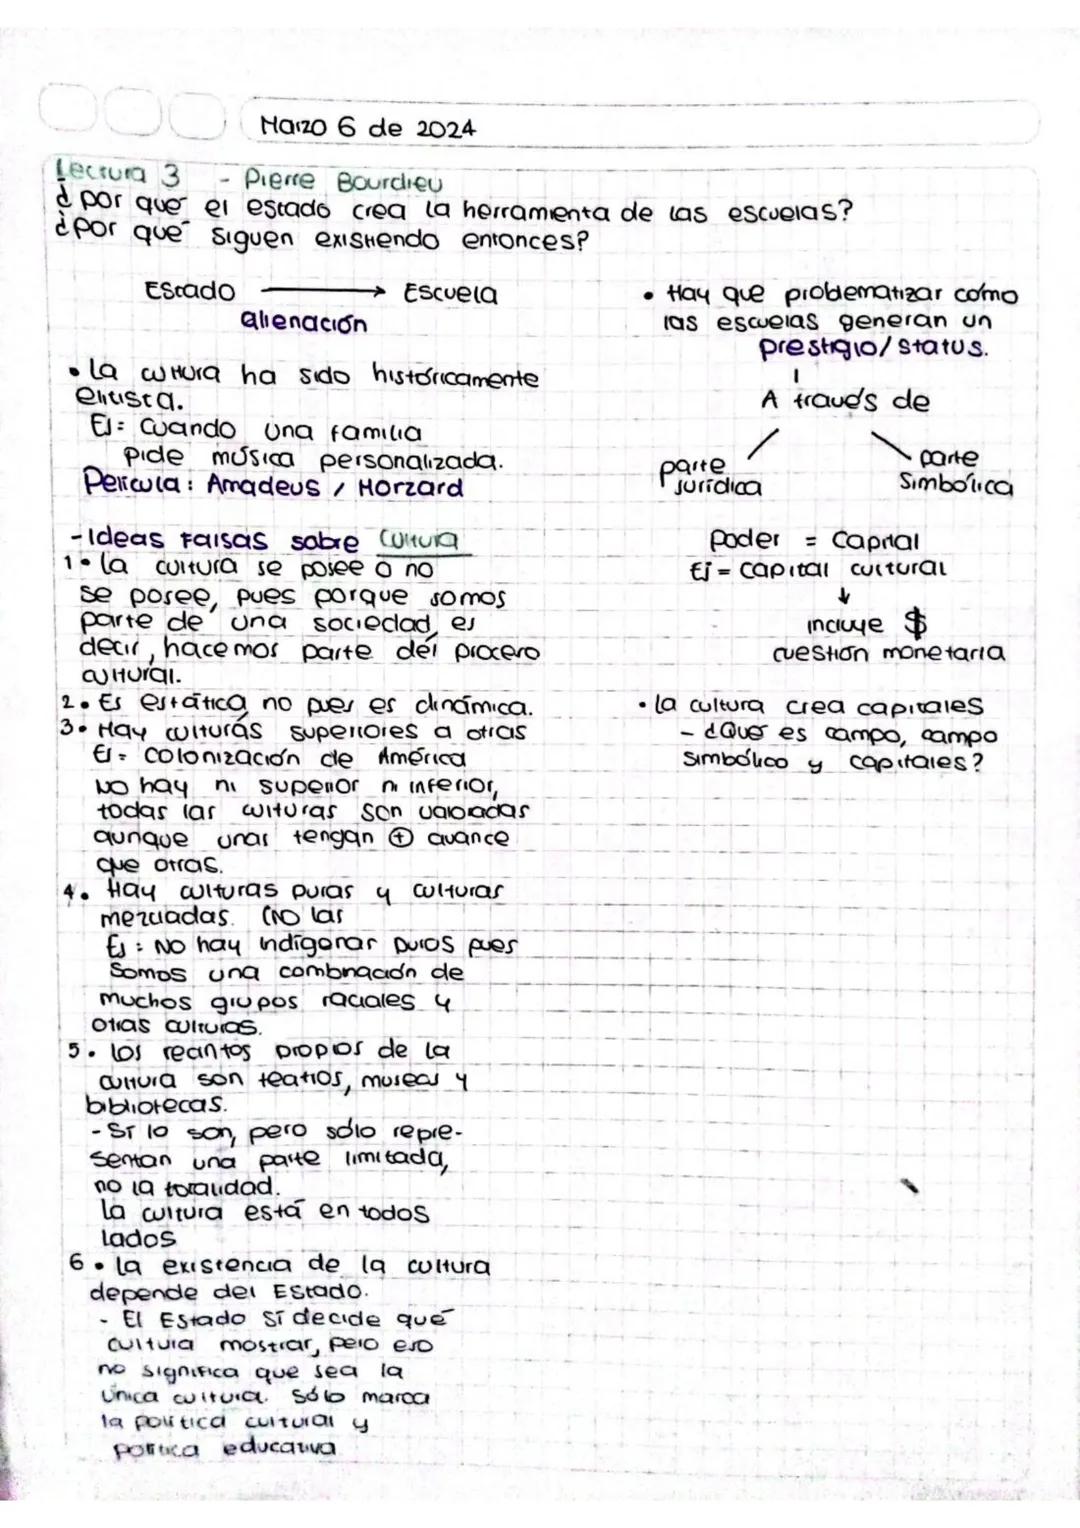 Marzo 6 de 2024
Lectura 3 - Pierre Bourdieu
¿por qué el estado crea la herramienta de las escuelas?
¿por qué siguen existiendo entonces?
Estado → Escuela
alienación
• La cultura ha sido históricamente
elitista.
Ej: Cuando una familia
pide música personalizada.
Película: Amadeus / Morzard
- Ideas Falsas sobre Cultura
1 • La cultura se posee o no
se posee, pues porque somos
parte de una sociedad, es
decir, hacemos parte del proceso
cultural.
2 • Es estática, no pues es dinámica.
3 • Hay culturas superiores a otras
Ej = Colonización de América
No hay ni superior ni inferior,
todas las culturas son valoradas
aunque unas tengan ⊕ avance
que otras.
4. Hay culturas puras y culturas
mezcladas. (NO las
Ej: NO hay indígenas puros pues
somos una combinación de
muchos grupos raciales y
otras culturas.
5. los recintos propios de la
cultura son teatros, museos y
bibliotecas.
- Sí lo son, pero sólo repre-
sentan una parte limitada,
no la totalidad.
La cultura está en todos
lados
6 • La existencia de la cultura
depende del Estado.
- El Estado sí decide qué
cultura mostrar, pero eso
no significa que sea la
única cultura. Sólo marca
la política cultural y
política educativa
• Hay que problematizar cómo
las escuelas generan un
prestigio/status.
A través de
parte jurídica
parte Simbólica
Poder = Capital
Ej = capital cultural
↓
incluye $
cuestión monetaria
• La cultura crea capitales
- ¿Qué es campo, campo
simbólico y capitales?